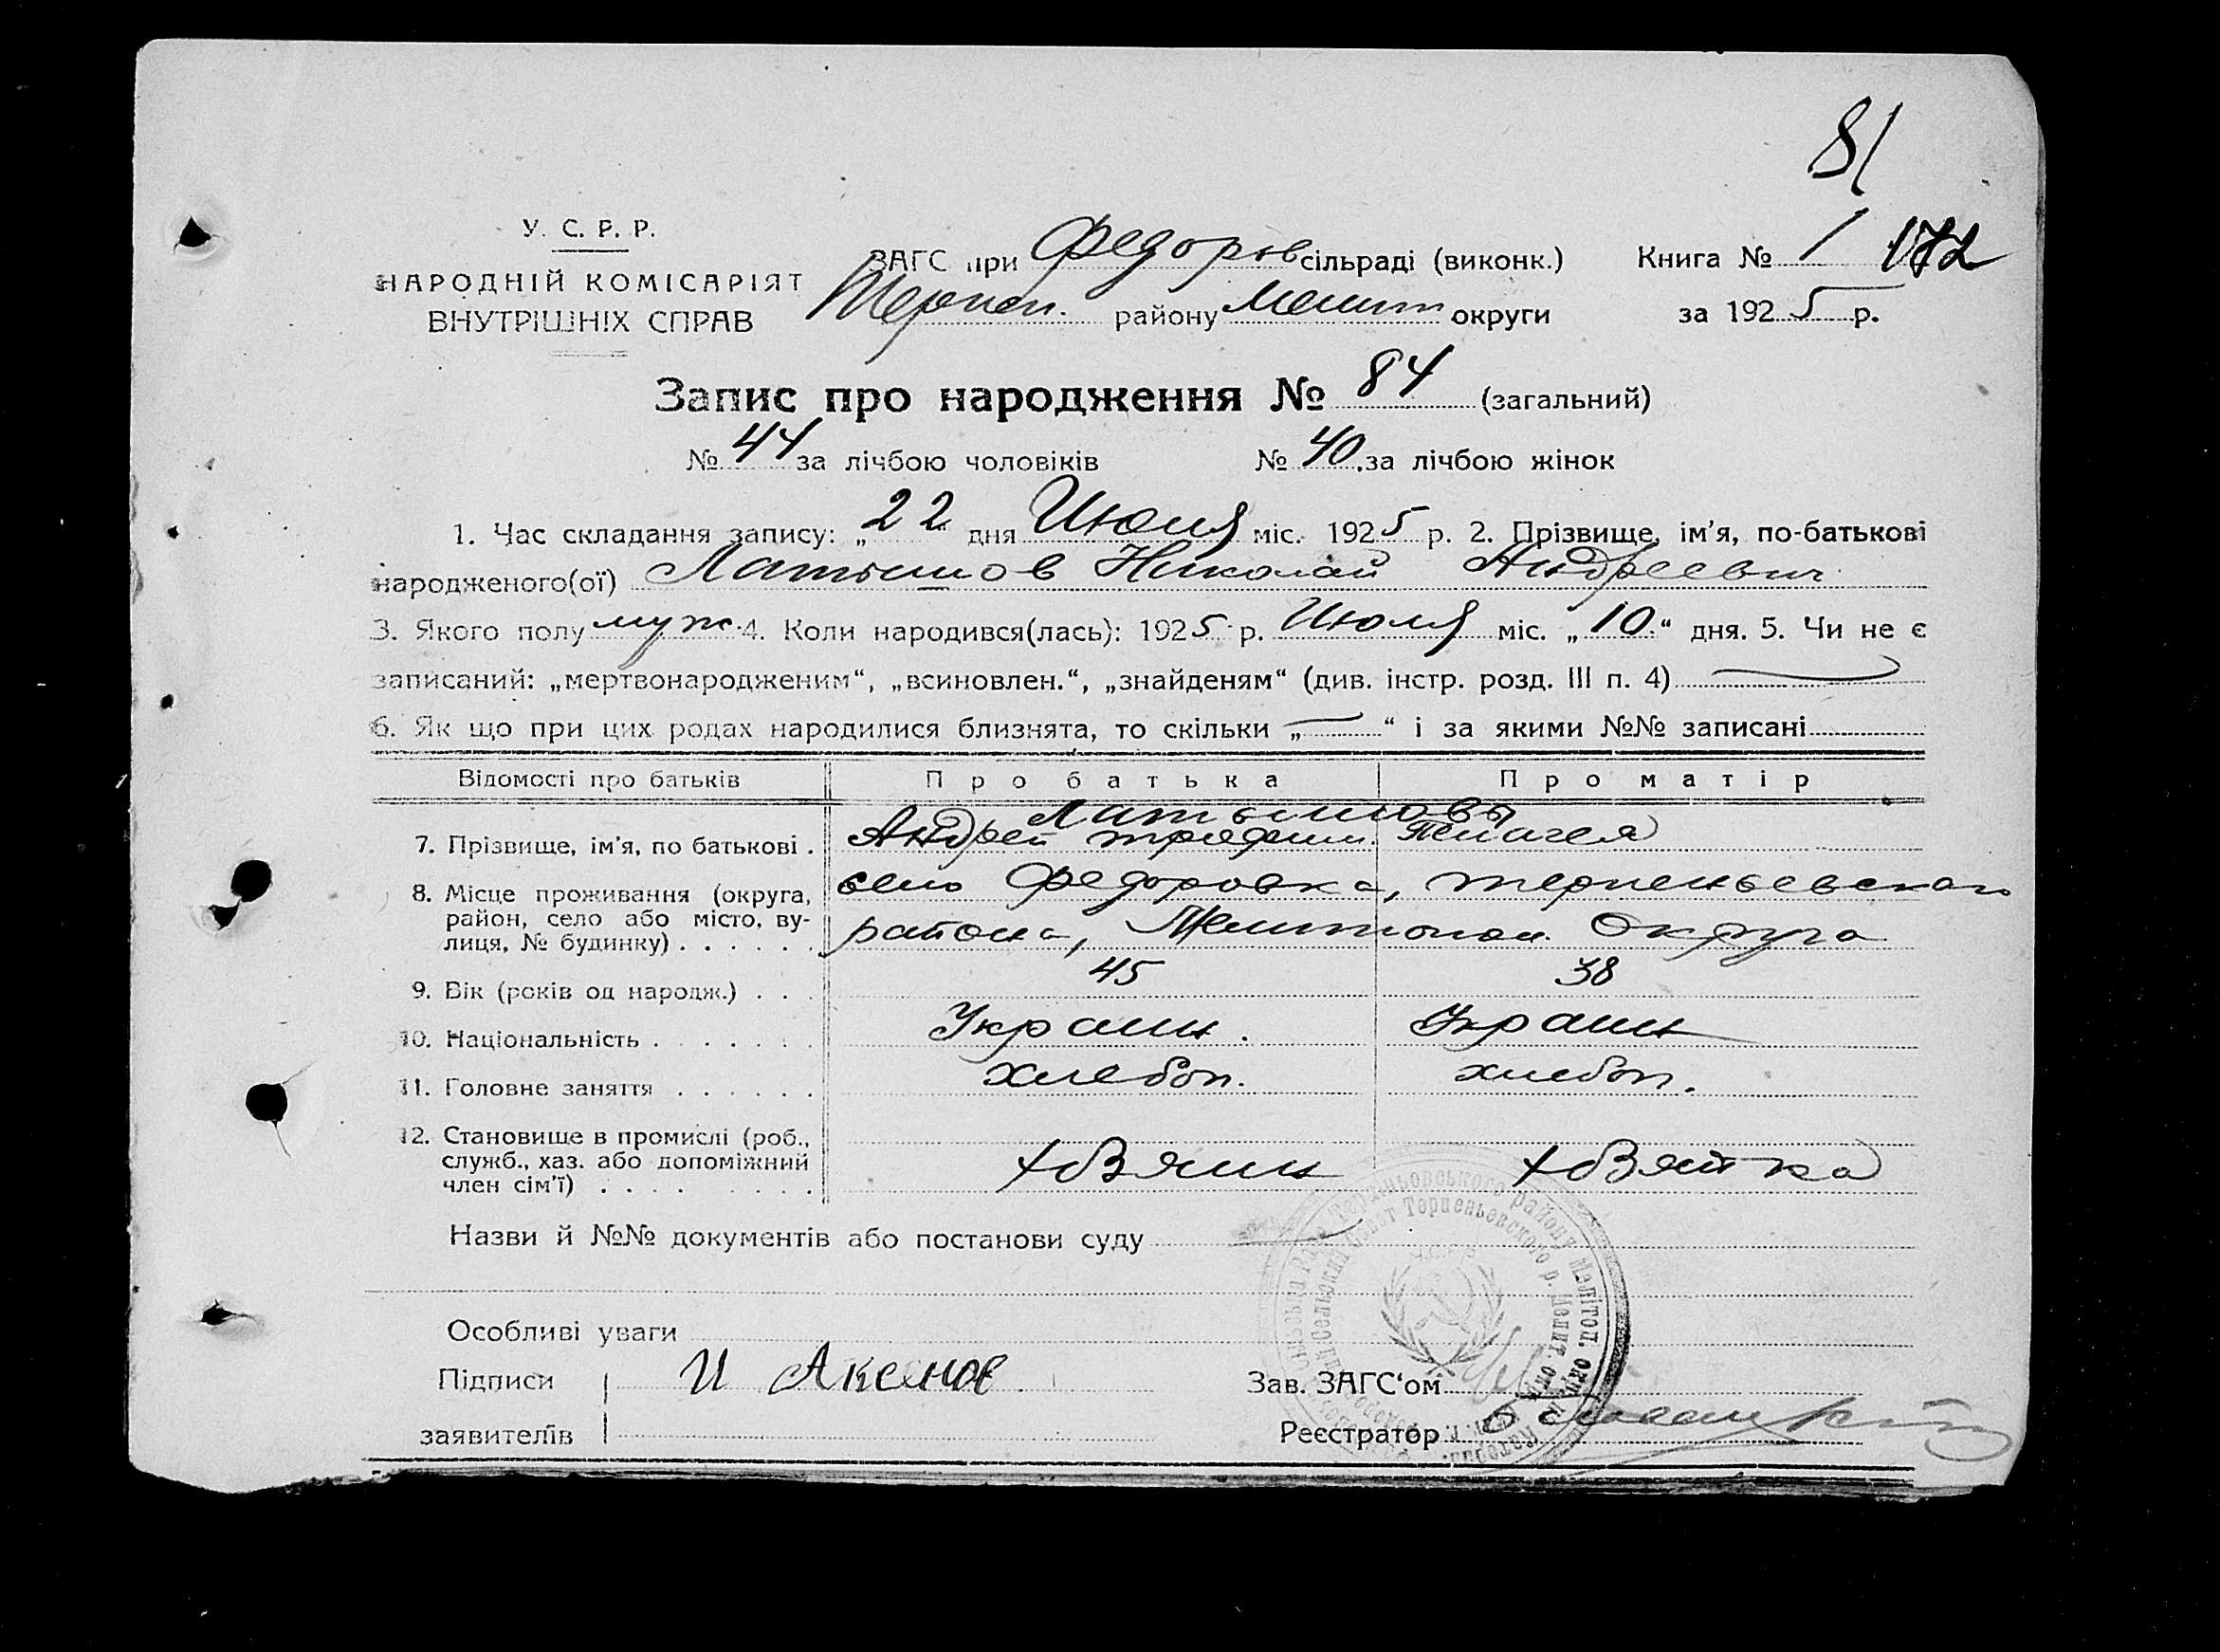 81
У. С. Р. Р.
НАРОДНІЙ КОМІСАРІЯТ
ВНУТРІШНІХ СПРАВ
ЗАГС при Федоров сільраді (виконк.)
Терпен. району Мелит округи
Книга № 1 172
за 1925 р.
Запис про народження № 84 (загальний)
№ 44 за лічбою чоловіків № 40 за лічбою жінок
1. Час складання запису: „22" дня Июля міс. 1925 р. 2. Прізвище, ім'я, по-батькові
народженого(ої) Латышов Николай Андреевич
3. Якого полу муж 4. Коли народився(лась): 1925 р. Июля міс. „10" дня. 5. Чи не є
записаний: „мертвонародженим", „всиновлен.", „знайденям" (див. інстр. розд. III п. 4)
6. Як що при цих родах народилися близнята, то скільки „ " і за якими №№ записані
Відомості про батьків Про батька Про матір
Латышовы
7. Прізвище, ім'я, по батькові . Андрей Трофим. Пелагея
8. Місце проживання (округа, район, село або місто, вулиця, № будинку) . . . . . . село Федоровка, Терпеньевскаго
района, Мелитопол. Округа
9. Вік (років од народж.) . . . 45 38
10. Національність . . . . . . . Украин. Украин
11. Головне заняття . . . . . . хлебоп. хлебоп.
12. Становище в промислі (роб., служб., хаз. або допоміжний член сім'ї) . . . . . . . . хозяин хозяйка
Назви й №№ документів або постанови суду
Особливі уваги
Підписи И Аксенов Зав. ЗАГС'ом
заявителів Реєстратор